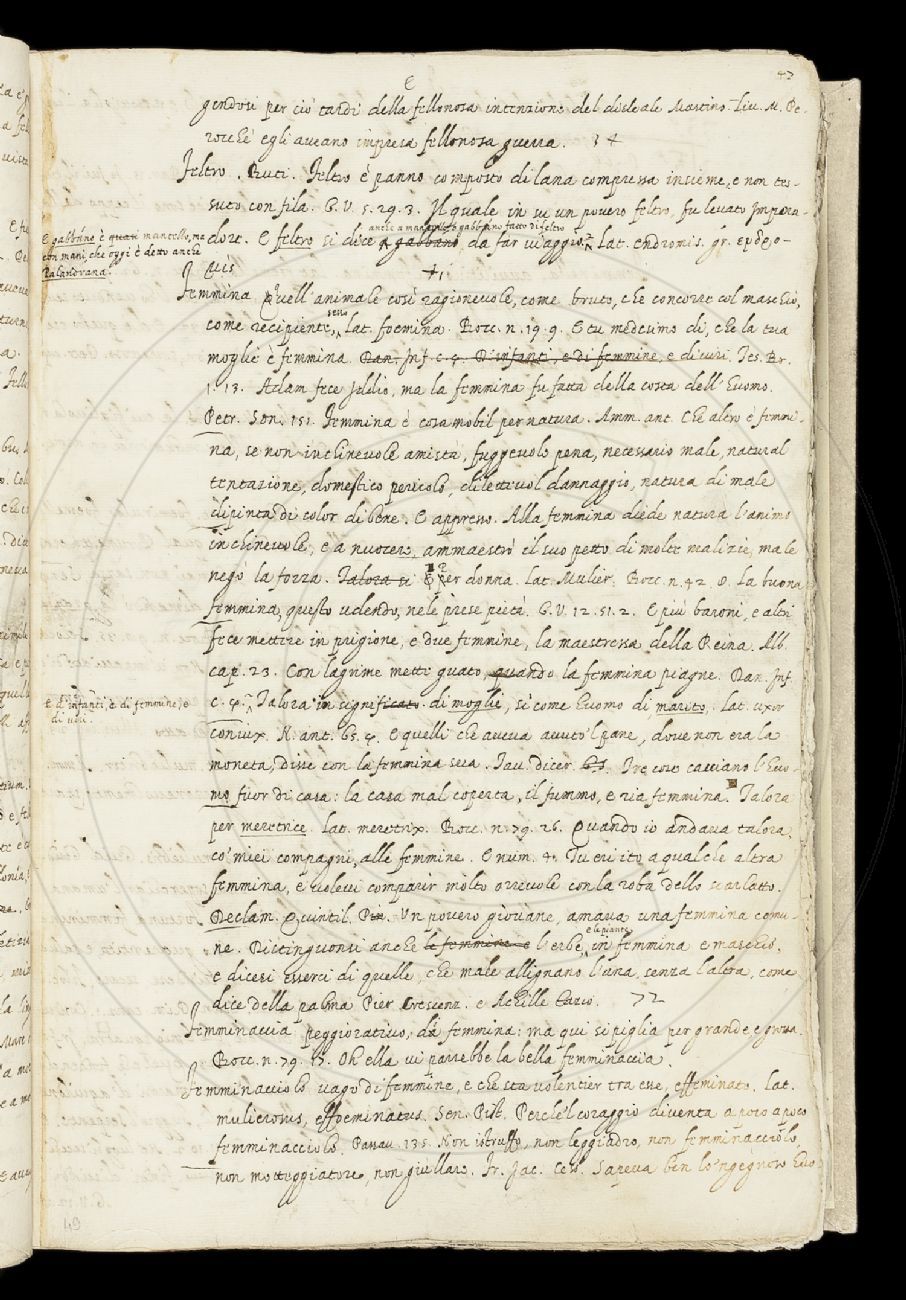 43
E
gendosi per ciò tardi della fellonosa intenzione del disleale Mastino. Liu. M. Pe-
rocchè egli aveano impresa fellonosa guerra. 34
Feltro. Ruti. Feltro è panno composto di lana compressa insieme, e non tes-
suto con fila. G. V. 5. 29. 3. Il quale in su un povero feltro, fu levato Impera-
anche a mantello gabbano fatto di feltro
dore. E feltro si dice a gabbano, da far viaggio. Lat. endromis. gr. ενδρο-
E gabbano è quasi mantello, ma
con mani, che oggi è detto anche
Palandrana.
μις
Femmina Quell'animale così ragionevole, come bruto, che concorre col maschio,
seme
come recipiente, lat. foemina. Bocc. n. 19. 9. E tu medesimo di, che la tua
moglie è femmina. Dan. Inf. c. 4. D'infanti, e di femmine, e di viri. Tes. Br.
1. 13. Adam fece Iddio, ma la femmina fu fatta della costa dell'Huomo.
Petr. Son. 151. Femmina è cosa mobil per natura. Amm. ant. Che altro è femmi-
na, se non inchinevole amistà, fuggevole pena, necessario male, natural
tentazione, domestico pericolo, dilettevol dannaggio, natura di male
dipinta di color di bene. E appresso. Alla femmina diede natura l'animo
inchinevole, e a nuocere, ammaestrò il suo petto di molte malizie, ma le
negò la forza. Talora si per donna. Lat. Mulier. Bocc. n. 42. 8. La buona
femmina, questo udendo, ne le prese pietà. G. V. 12. 51. 2. E più baroni, e altri
fece mettere in prigione, e due femmine, la maestressa della Reina. Alb.
cap. 23. Con lagrime mette guato, quando la femmina piagne. Dan. Inf.
c. 4. Talora in significato di moglie, sì come Huomo di marito. Lat. uxor
E d'infanti, e di femmine, e
di viri.
coniux. N. ant. 65. 4. E quelli che aveva avuto 'l pane, dove non era la
moneta, disse con la femmina sua. Tav. dicer. Tre cose cacciano l'Huo-
mo fuor di casa: la casa mal coperta, il fummo, e ria femmina. Talora
per meretrice. Lat. meretrix. Bocc. n. 79. 26. Quando io andava talora
co' miei compagni, alle femmine. E num. 4. Tu eri ito a qualche altra
femmina, e volevi comparir molto orrevole con la roba dello scarlatto.
Declam. Quintil. P. Un povero giovane, amava una femmina comu-
e le piante
ne. Distinguonsi anche le femmine e l'erbe, in femmina e maschio,
e dicesi esserci di quelle, che male allignano l'una, senza l'altra, come
dice della palma Pier Crescenz. e Achille Tazio. 72
Femminaccia peggiorativo, da femmina: ma qui si piglia per grande e grossa.
Bocc. n. 79. 15. Oh ella vi parrebbe la bella femminaccia.
Femminacciolo vago di femmine, e che sta volentier tra esse, effeminato. Lat.
mulierosus, effoeminatus. Sen. Pist. Perchè 'l coraggio diventa a poco a poco
femminacciolo. Passav. 135. Non istruffo, non leggiadro, non femminacciolo,
non motteggiatore, non giullaro. Fr. Jac. Cess. Sapeva ben lo 'ngegnoso Huo
49